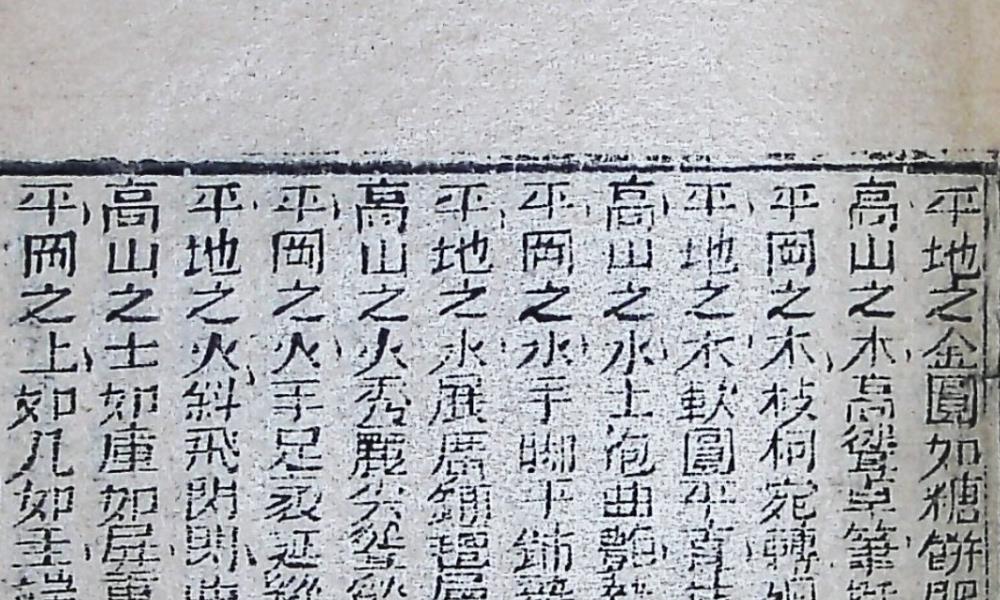 平地之金圓如糖餅肥
高山之木高聳卓筆
平岡之木枝柯宛轉
平地之木軟圓平直
高山之水土泡曲
平岡之水手腳平鋪
平地之水展席鋪
高山之火秀麗尖聳
平岡之火手足衮延
平地之火斜飛閃閃
高山之士如庫如屏
平岡之上如几如圭